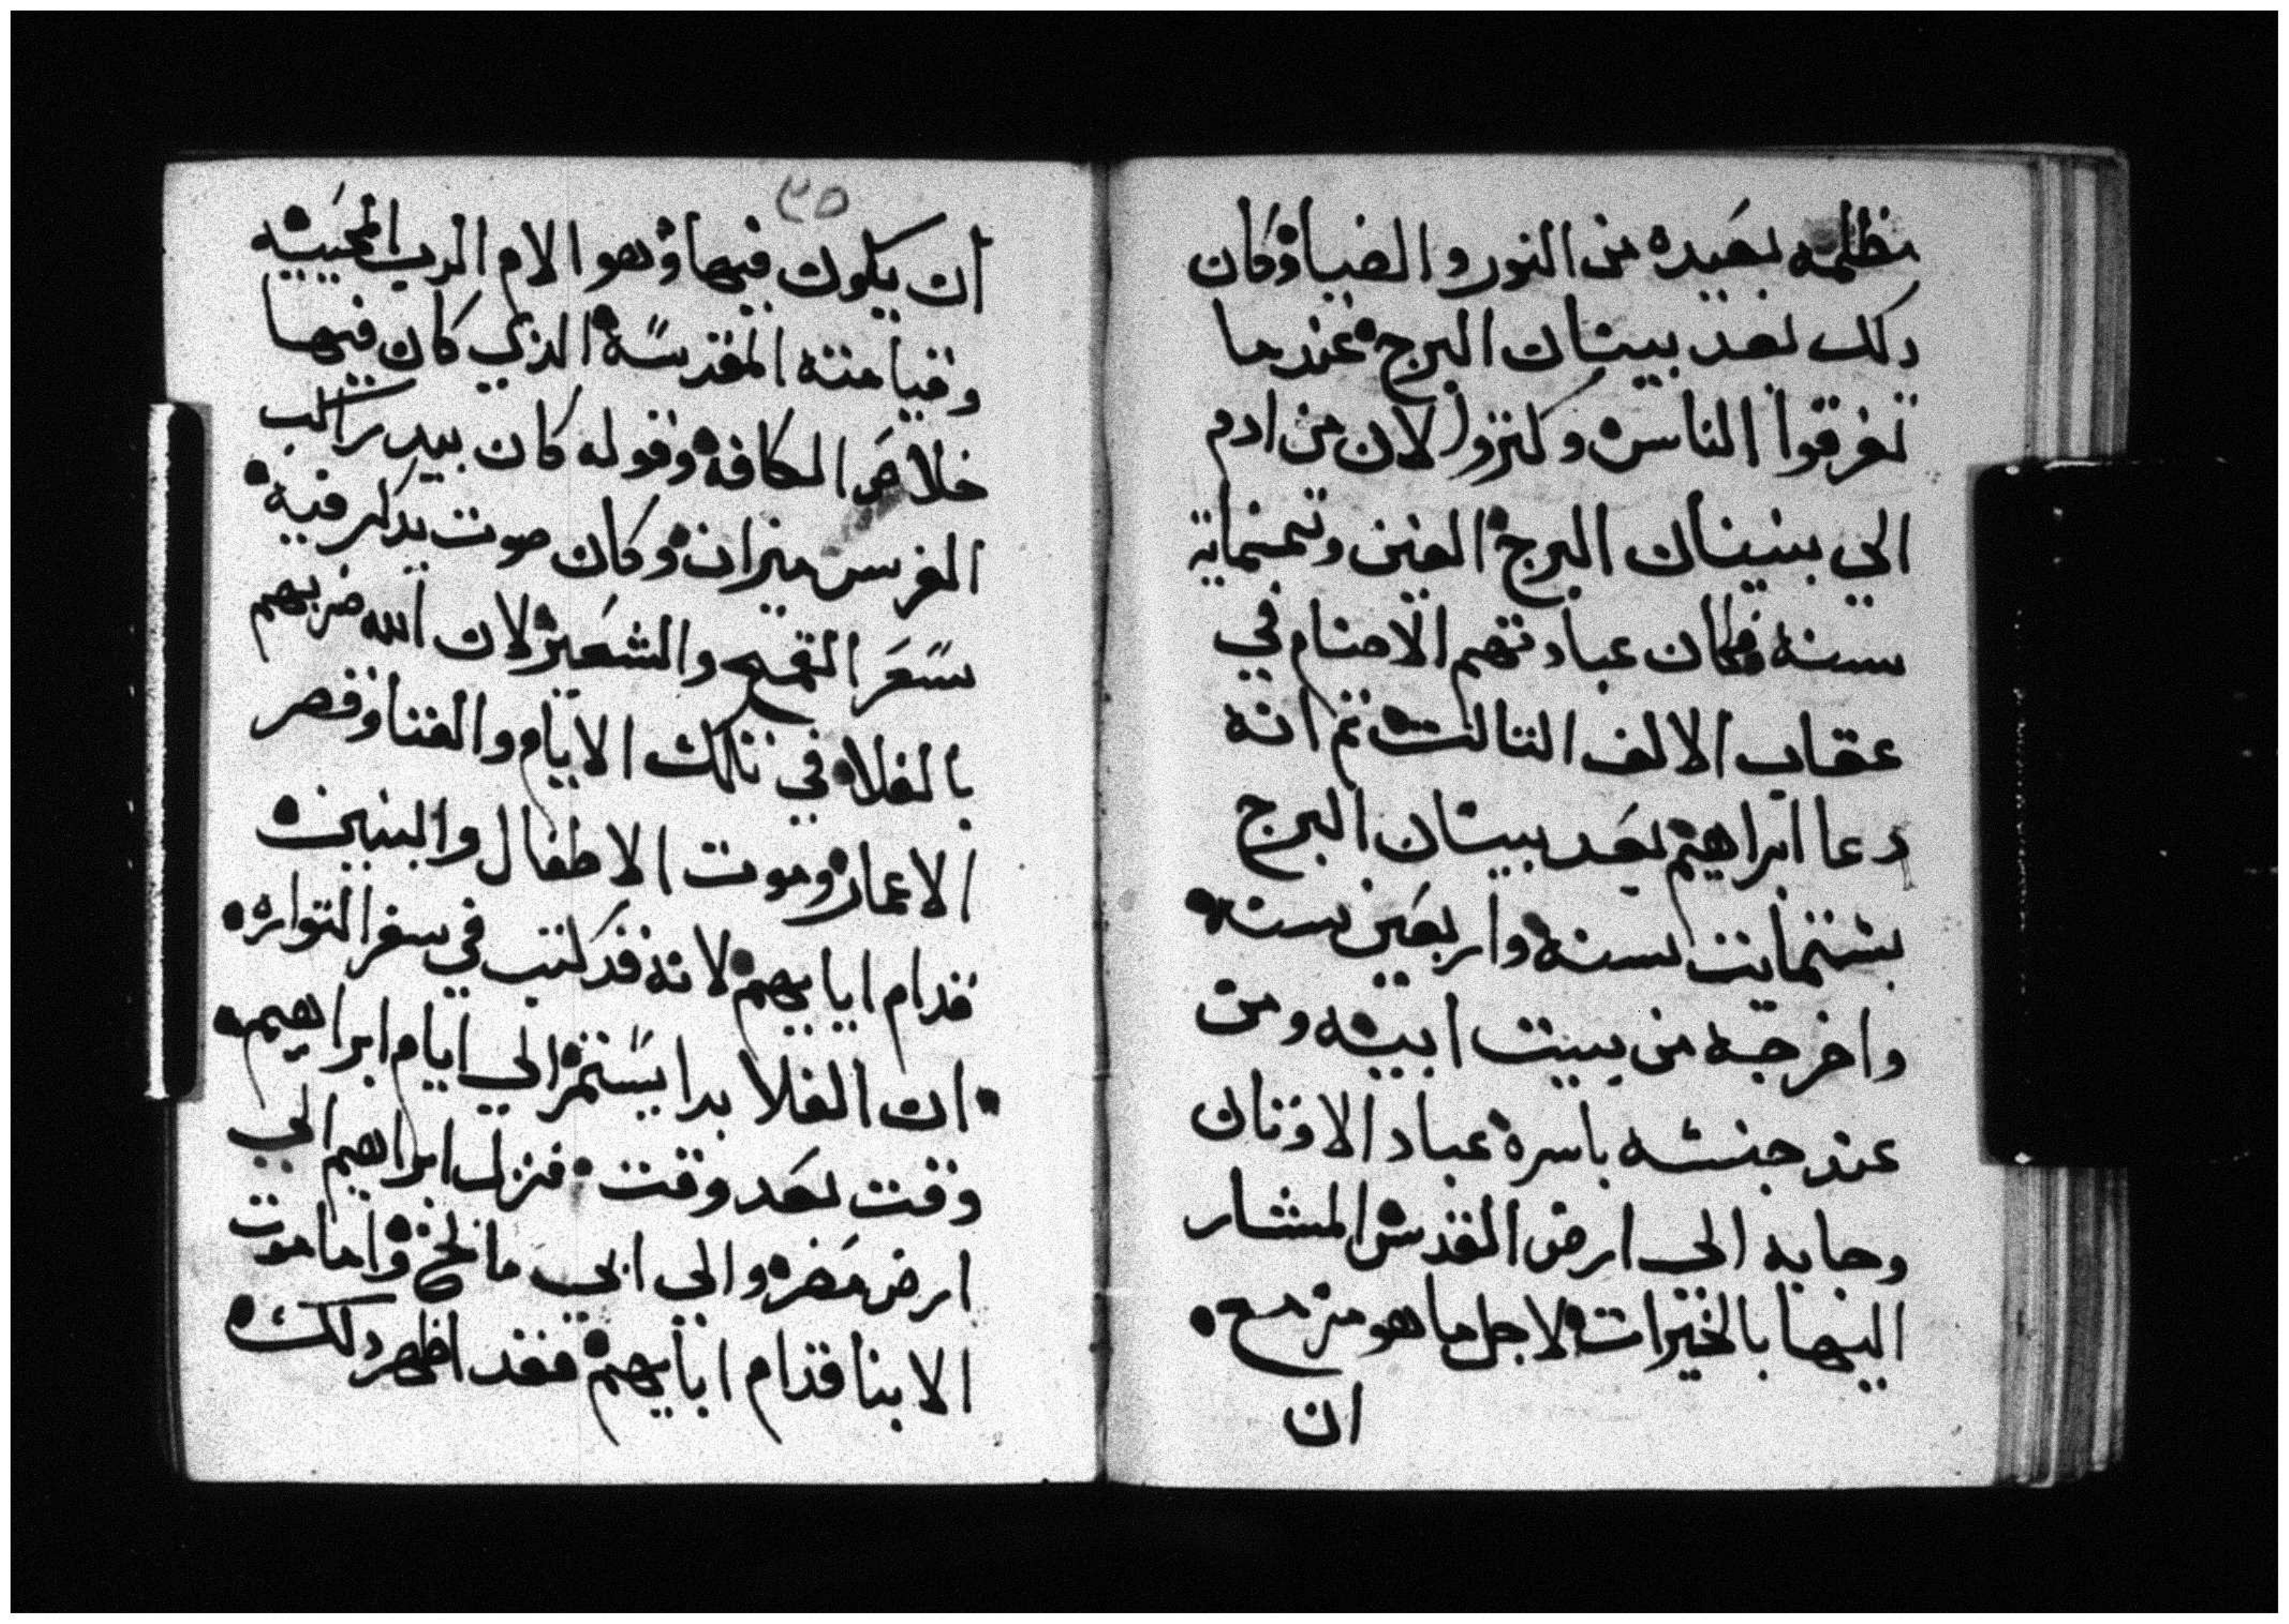 مظلمه بعيده من النور والضيا وكان
دلك بعد بينان البرج عندما
تفرقوا الناس وكتروا لان من ادم
الي بنينان البرج الفين وتمنماية
سنه فكان عبادتهم الاصنام في
عقاب الالف التالت تم انه
دعا ابراهيم بعد بينان البرج
بستماية سنه واربعين سنه
واخرجه من بيت ابيه ومن
عند جنسه باسره عباد الاوتان
وجابه الي ارض القدس المشار
اليها بالخيرات لاجل ما هو مزمع
ان
٣٥
ان يكون فيها وهو الام الرب المحييه
وقيامته المقدسة الذي كان فيها
خلاص الكافة وقوله كان بيد راكب
الفرس ميزان وكان صوت يدكر فيه
سعر القمح والشعير لان الله ضربهم
بالغلا في تلك الايام والفنا وقصر
الاعمار وموت الاطفال والبنين
قدام ابايهم لانه قد كتب في سفر التوراه
ان الغلا بدا يستمر الي ايام ابراهيم
وقت بعد وقت فنزل ابراهيم الي
ارض مصر والي ابي مالخ واما موت
الابنا قدام ابايهم فقد اظهر دلك